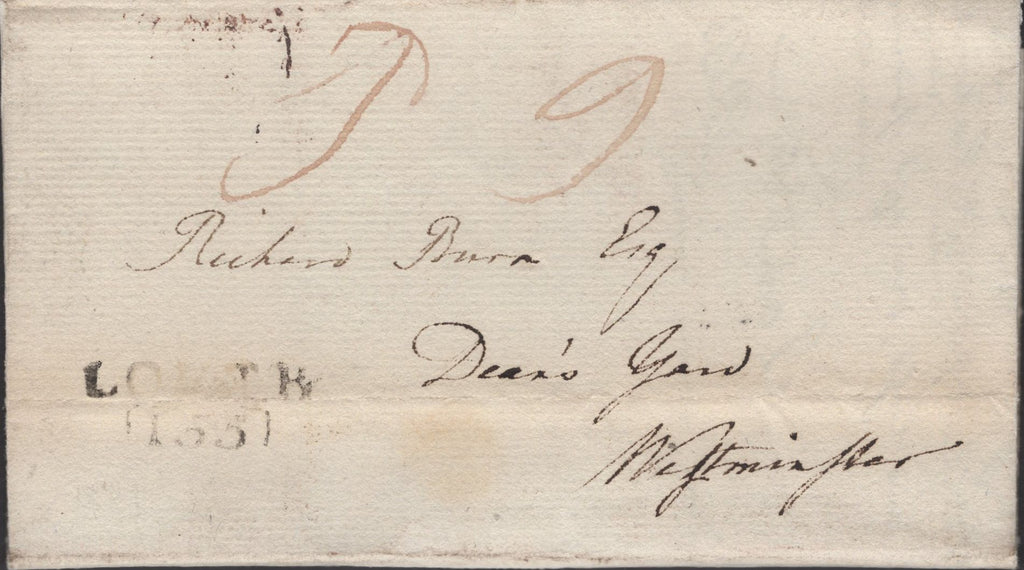 9
Richard Burn Esq
Dean's Yard
Westminster
LOUTH
(155)